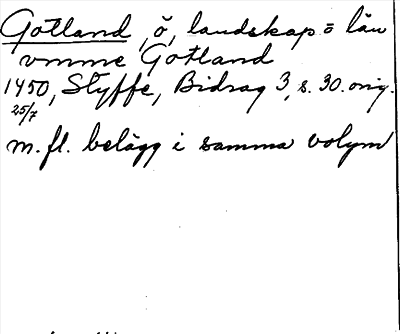 Gotland, ö, landskap o län
vmme Gotland
1450, Styffe, Bidrag 3, s. 30. orig.
25/7
m. fl. belägg i samma volym